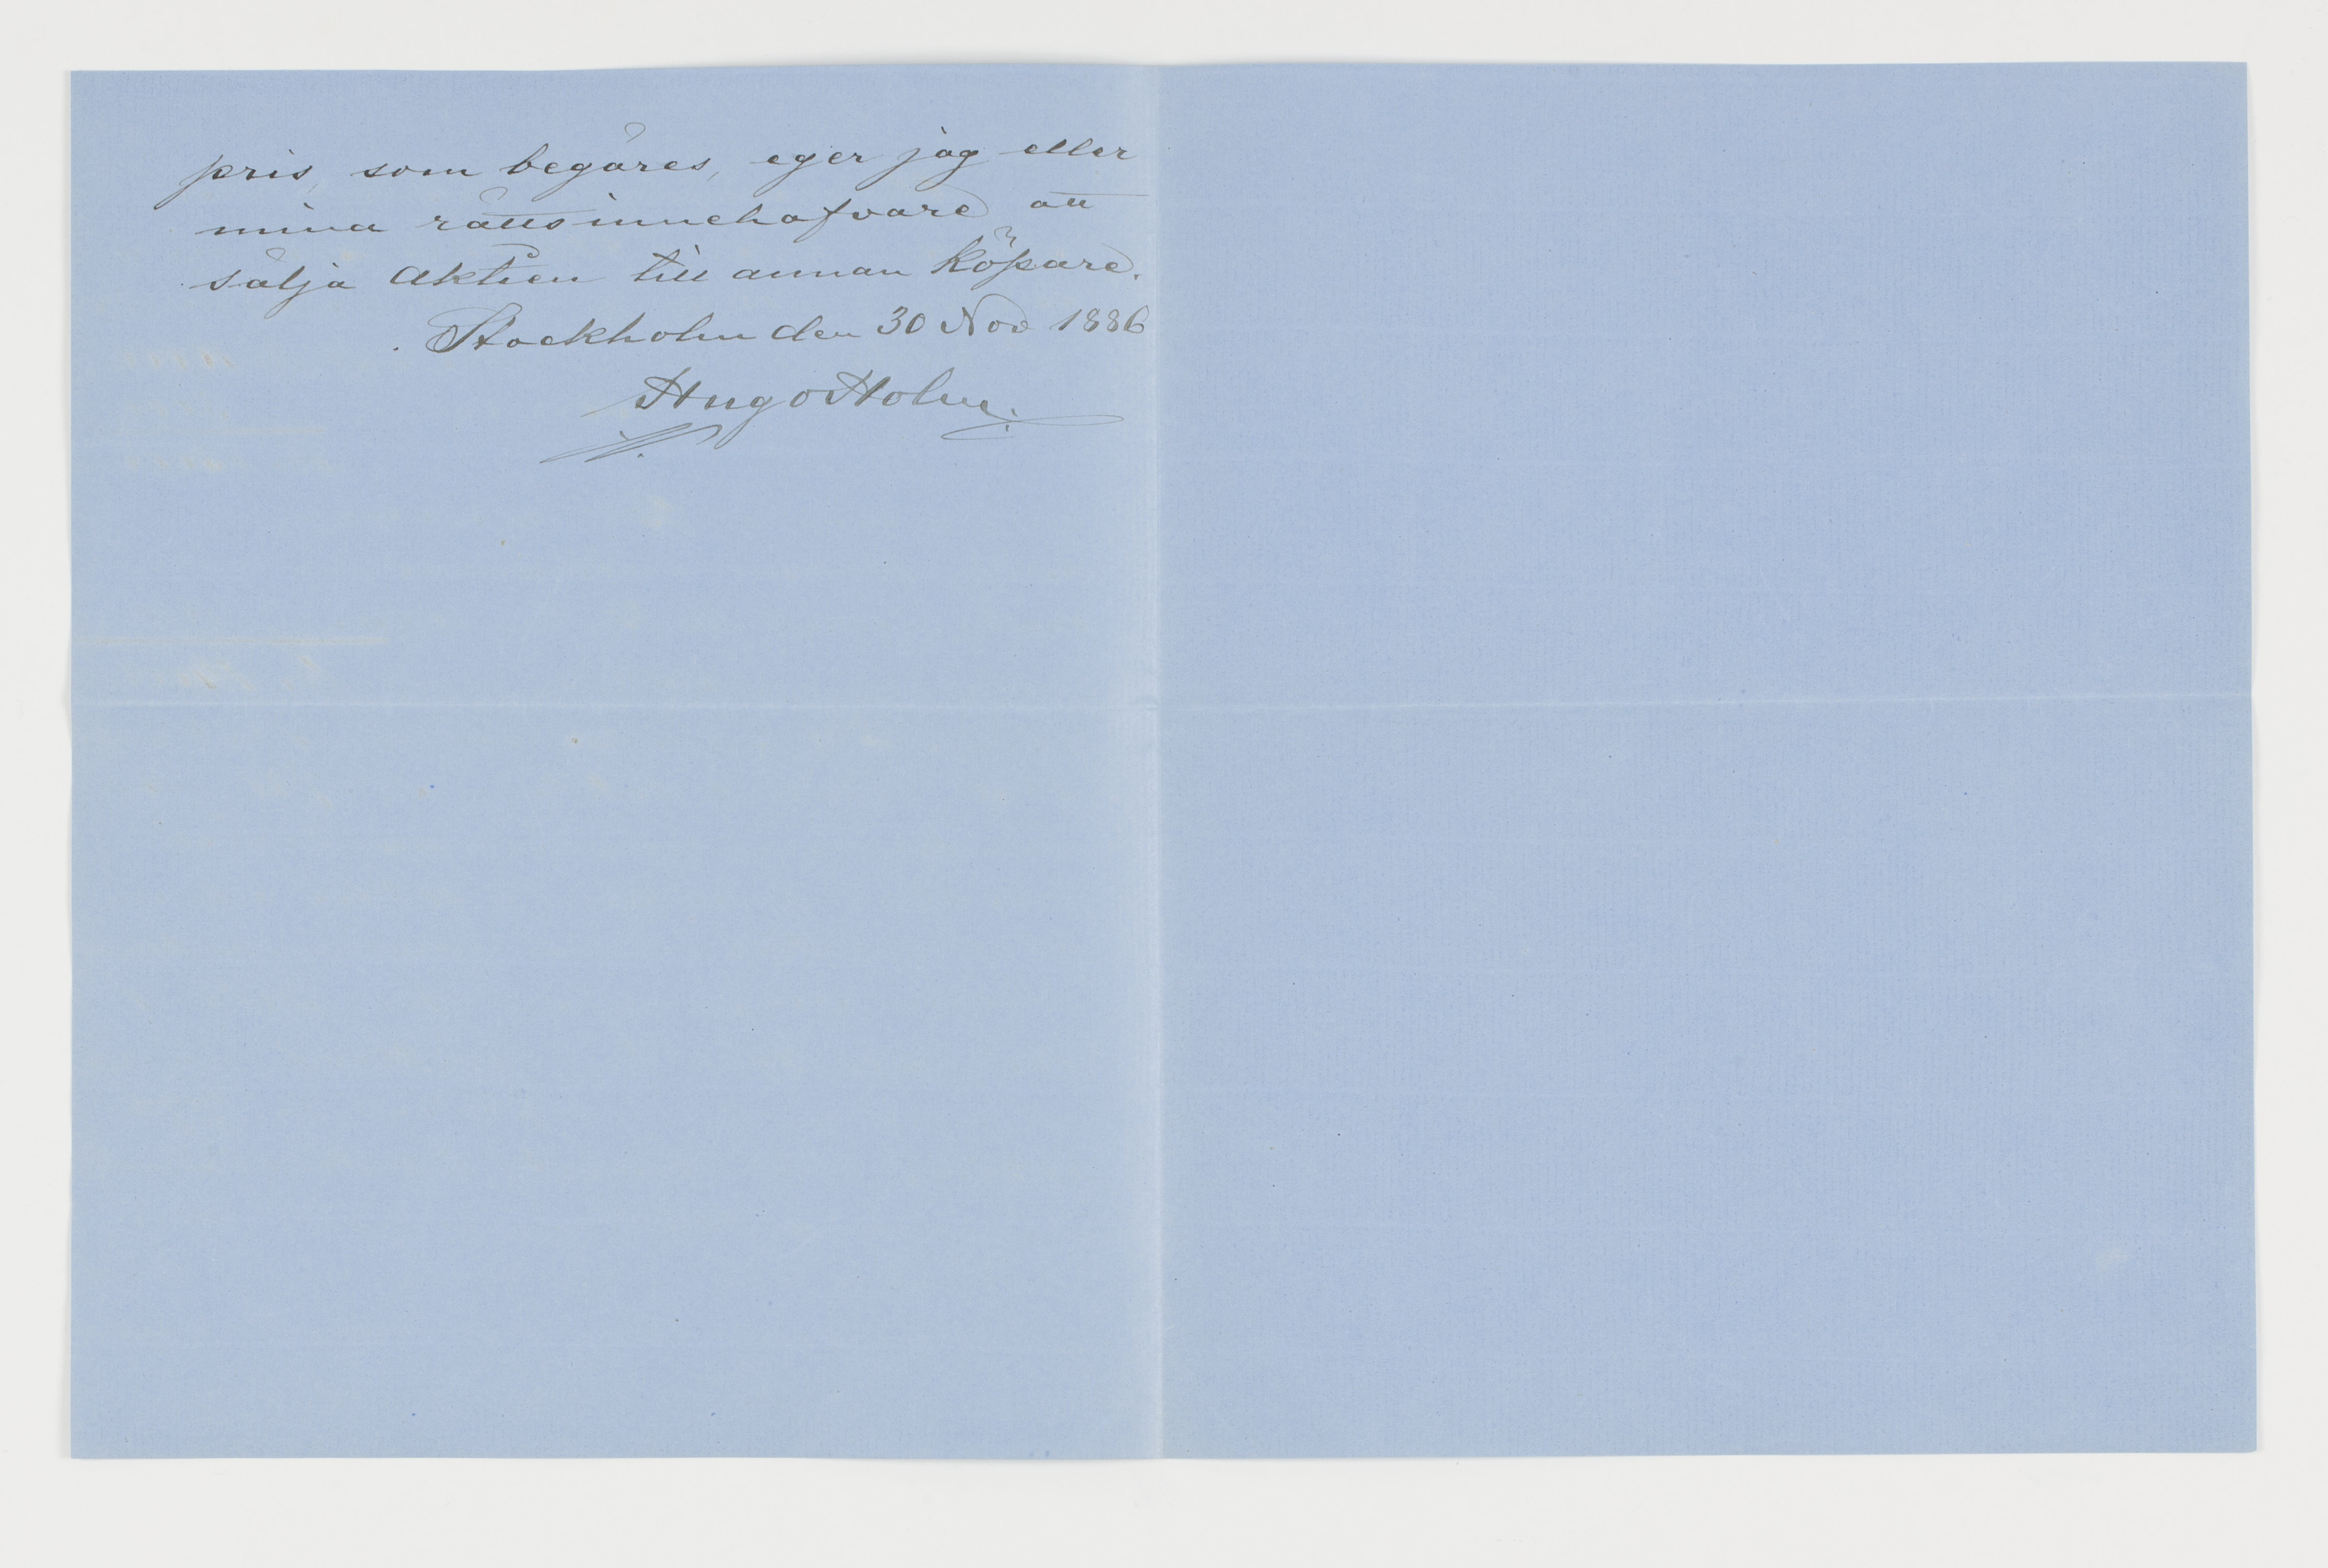 pris, som begäres, eger jag eller
mina rättsinnehafvare att
sälja Aktien till annan Köpare.
Stockholm den 30 Nov 1886
Hugo Holm